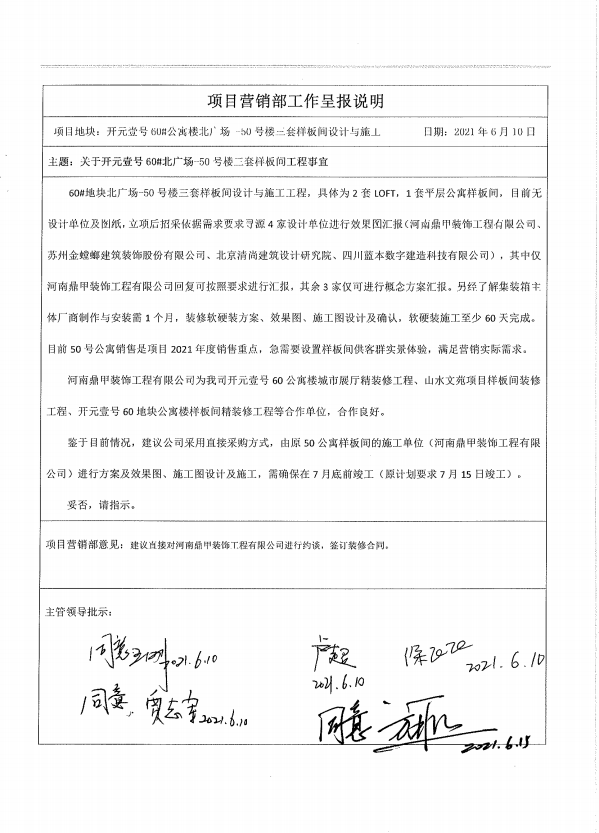 项目营销部工作呈报说明
项目地块：开元壹号60#公寓楼北广场-50号楼三套样板间设计与施工 日期：2021年6月10日
主题：关于开元壹号60#北广场-50号楼三套样板间工程事宜
60#地块北广场-50号楼三套样板间设计与施工工程，具体为2套LOFT，1套平层公寓样板间，目前无
设计单位及图纸，立项后招采依据需求要求寻源4家设计单位进行效果图汇报（河南鼎甲装饰工程有限公司、
苏州金螳螂建筑装饰股份有限公司、北京清尚建筑设计研究院、四川蓝本数字建造科技有限公司），其中仅
河南鼎甲装饰工程有限公司回复可按照要求进行汇报，其余3家仅可进行概念方案汇报。另经了解集装箱主
体厂商制作与安装需1个月，装修软硬装方案、效果图、施工图设计及确认，软硬装施工至少60天完成。
目前50号公寓销售是项目2021年度销售重点，急需要设置样板间供客群实景体验，满足营销实际需求。
河南鼎甲装饰工程有限公司为我司开元壹号60公寓楼城市展厅精装修工程、山水文苑项目样板间装修
工程、开元壹号60地块公寓楼样板间精装修工程等合作单位，合作良好。
鉴于目前情况，建议公司采用直接采购方式，由原50公寓样板间的施工单位（河南鼎甲装饰工程有限
公司）进行方案及效果图、施工图设计及施工，需确保在7月底前竣工（原计划要求7月15日竣工）。
妥否，请指示。
项目营销部意见：建议直接对河南鼎甲装饰工程有限公司进行约谈，签订装修合同。
主管领导批示：
同意 2021.6.10
卢超
2021.6.10
2021.6.10
同意 贾志 2021.6.10
同意 2021.6.15